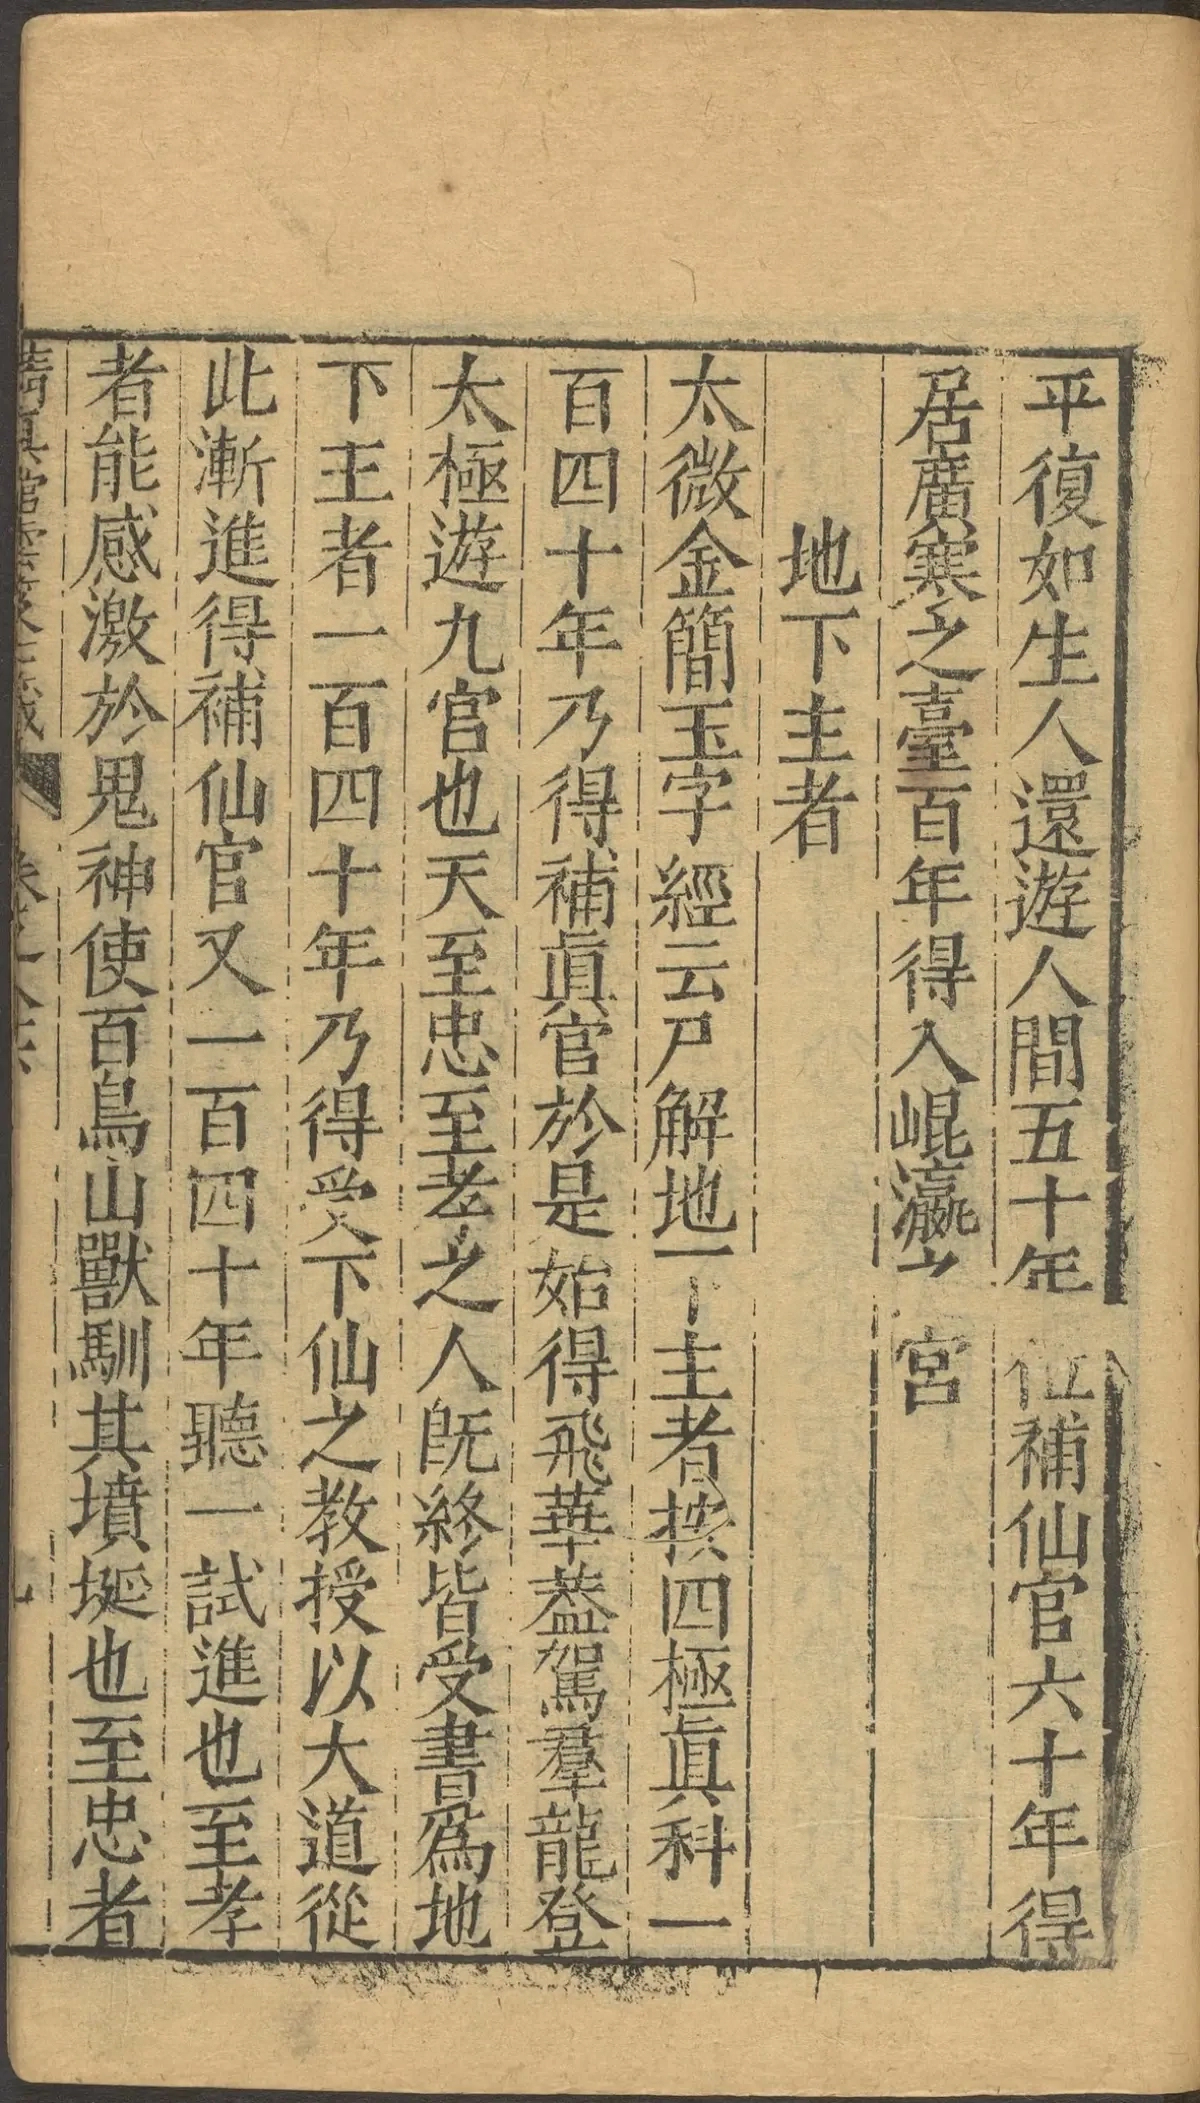 平復如生人還遊人間五十年位補仙官六十年得
居廣寒之臺百年得入崐瀛之宮
地下主者
太微金簡玉字經云尸解地下主者按四極眞科一
百四十年乃得補眞官於是始得飛華葢駕羣龍登
太極遊九宮也天至忠至孝之人旣終皆受書爲地
下主者一百四十年乃得受下仙之教授以大道從
此漸進得補仙官又一百四十年聽一試進也至孝
者能感激於鬼神使百鳥山獸馴其墳埏也至忠者
清真館雲笈七籤 卷之八十六 九